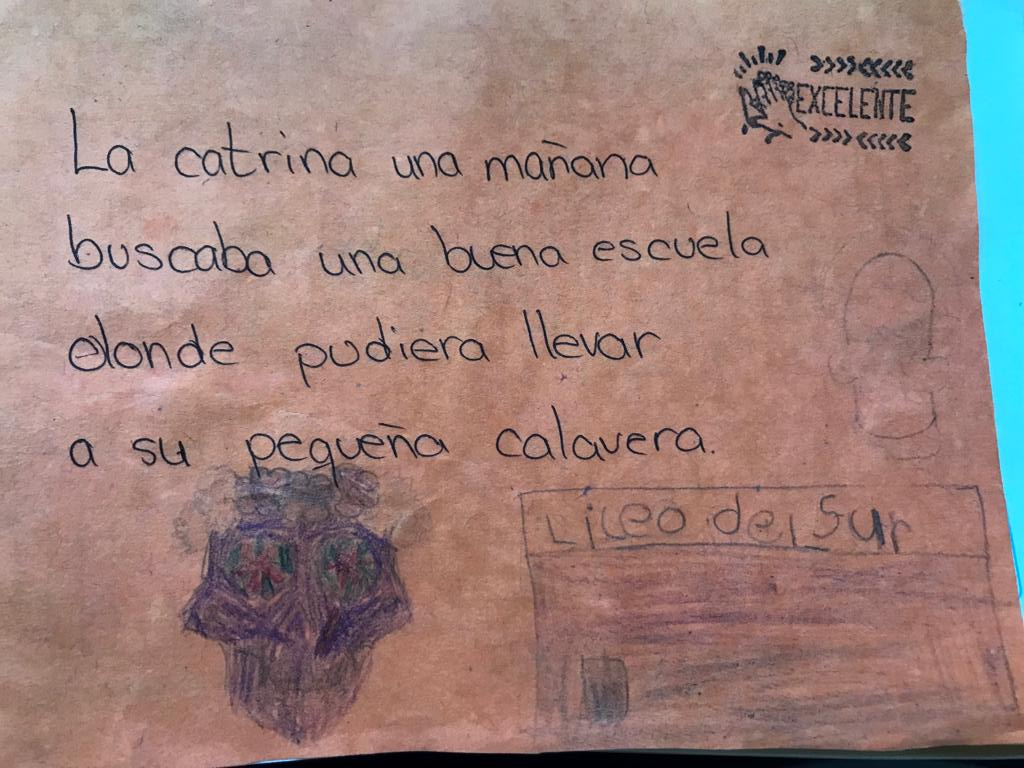 EXCELENTE
La catrina una mañana
buscaba una buena escuela
donde pudiera llevar
a su pequeña calavera.
Liceo del Sur